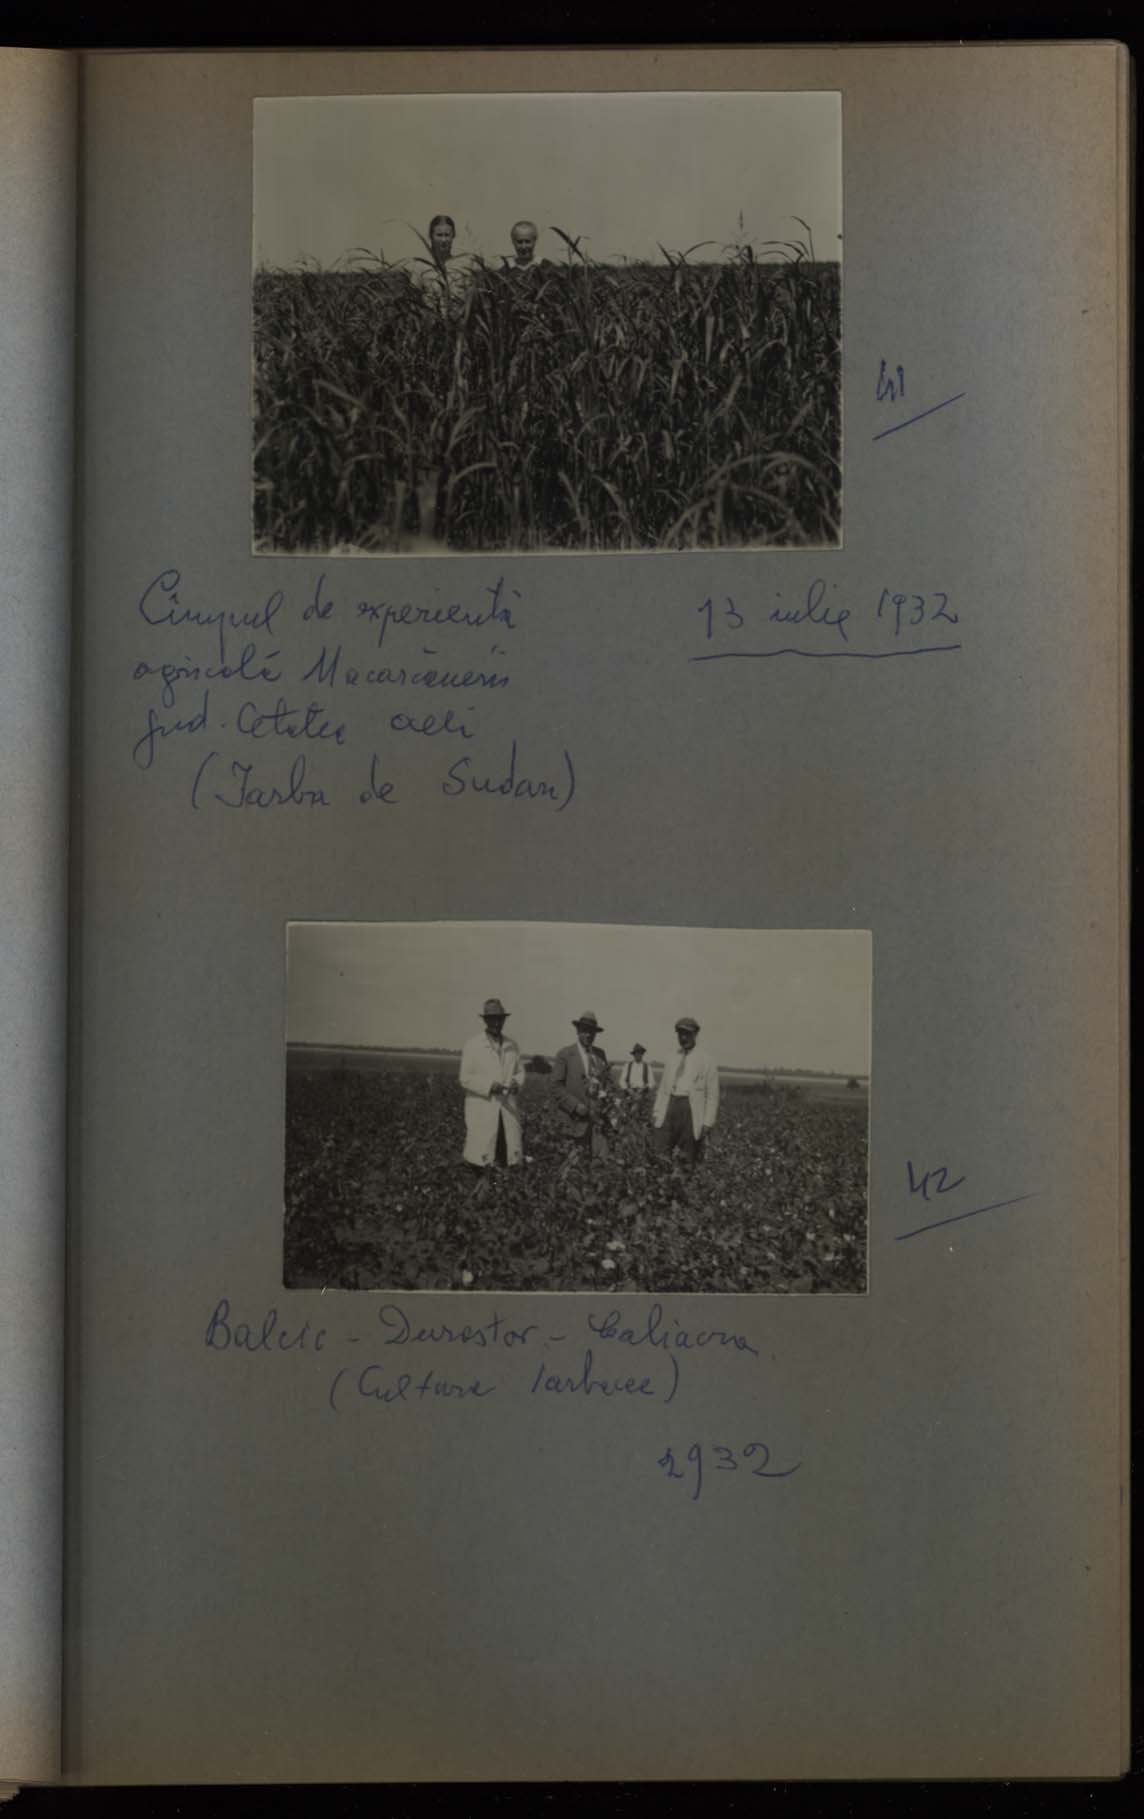 41
Cîmpul de experiență
agricolă Macarcăuesii
jud. Cetatea Albă
13 iulie 1932
(Iarba de Sudan)
42
Balcic - Durostor - Caliacra
(Cultura
1932